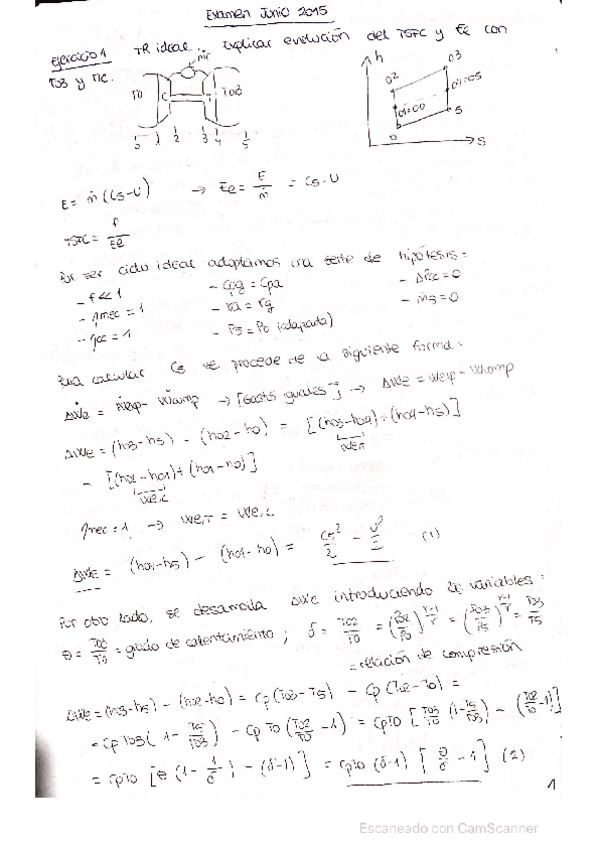 Examen Junio 2015
Ejercicio 1 TR ideal. Explicar evolución del TSFC y Ee con
T03 y πc.
ṁf
T0 C T T03
0 1 2 3 4 5
h
03
02
04=05
01=00
5
0
S
E = ṁ(C5-U) → Ee = E/ṁ = C5-U
TSFC = f/Ee
Por ser ciclo ideal adoptamos una serie de hipótesis:
- f<<1 - Cpg = Cpa - ΔPcc=0
- ηmec = 1 - γa = γg - ṁs=0
- ηcc = 1 - P5 = P0 (adaptada)
Para calcular C5 se procede de la siguiente forma:
ΔẆe = Ẇexp - Ẇcomp → [Gastos iguales] → ΔWe = Wexp - Wcomp
ΔWe = (h03-h5) - (h02-h0) = [(h03-h04)+(h04-h5)]
We,T
- [(h02-h01)+(h01-h0)]
We,C
ηmec = 1 → We,T = We,C
ΔWe = (h04-h5) - (h01-h0) = C5²/2 - U²/2 (1)
Por otro lado, se desarrolla ΔWe introduciendo 2 variables:
θ = T03/T0 = grado de calentamiento; δ = T02/T0 = (P02/P0)^(γ-1/γ) = (P03/P5)^(γ-1/γ) = T03/T5
= relación de compresión
ΔWe = (h03-h5) - (h02-h0) = Cp(T03-T5) - Cp(T02-T0) =
= Cp T03 (1 - T5/T03) - Cp T0 (T02/T0 - 1) = CpT0 [T03/T0 (1 - T5/T03) - (T02/T0 - 1)]
= CpT0 [θ (1 - 1/δ) - (δ-1)] = CpT0 (δ-1) [θ/δ - 1] (2)
1
Escaneado con CamScanner